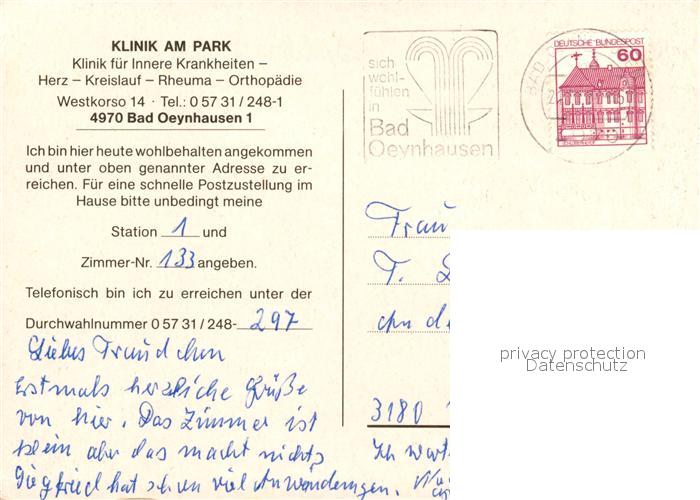 KLINIK AM PARK
Klinik für Innere Krankheiten –
Herz – Kreislauf – Rheuma – Orthopädie
Westkorso 14 · Tel.: 0 57 31 / 248-1
4970 Bad Oeynhausen 1
Ich bin hier heute wohlbehalten angekommen
und unter oben genannter Adresse zu er-
reichen. Für eine schnelle Postzustellung im
Hause bitte unbedingt meine
Station 1 und
Zimmer-Nr. 133 angeben.
Telefonisch bin ich zu erreichen unter der
Durchwahlnummer 0 57 31 / 248- 297
Liebes Traudchen
Erstmals herzliche Grüße
von hier. Das Zimmer ist
klein aber das macht nichts
Siegfried hat schon viel Anwendungen.
sich
wohl-
fühlen
in
Bad
Oeynhausen
BAD
DEUTSCHE BUNDESPOST
60
Frau
T.
3180
Ich
privacy protection
Datenschutz